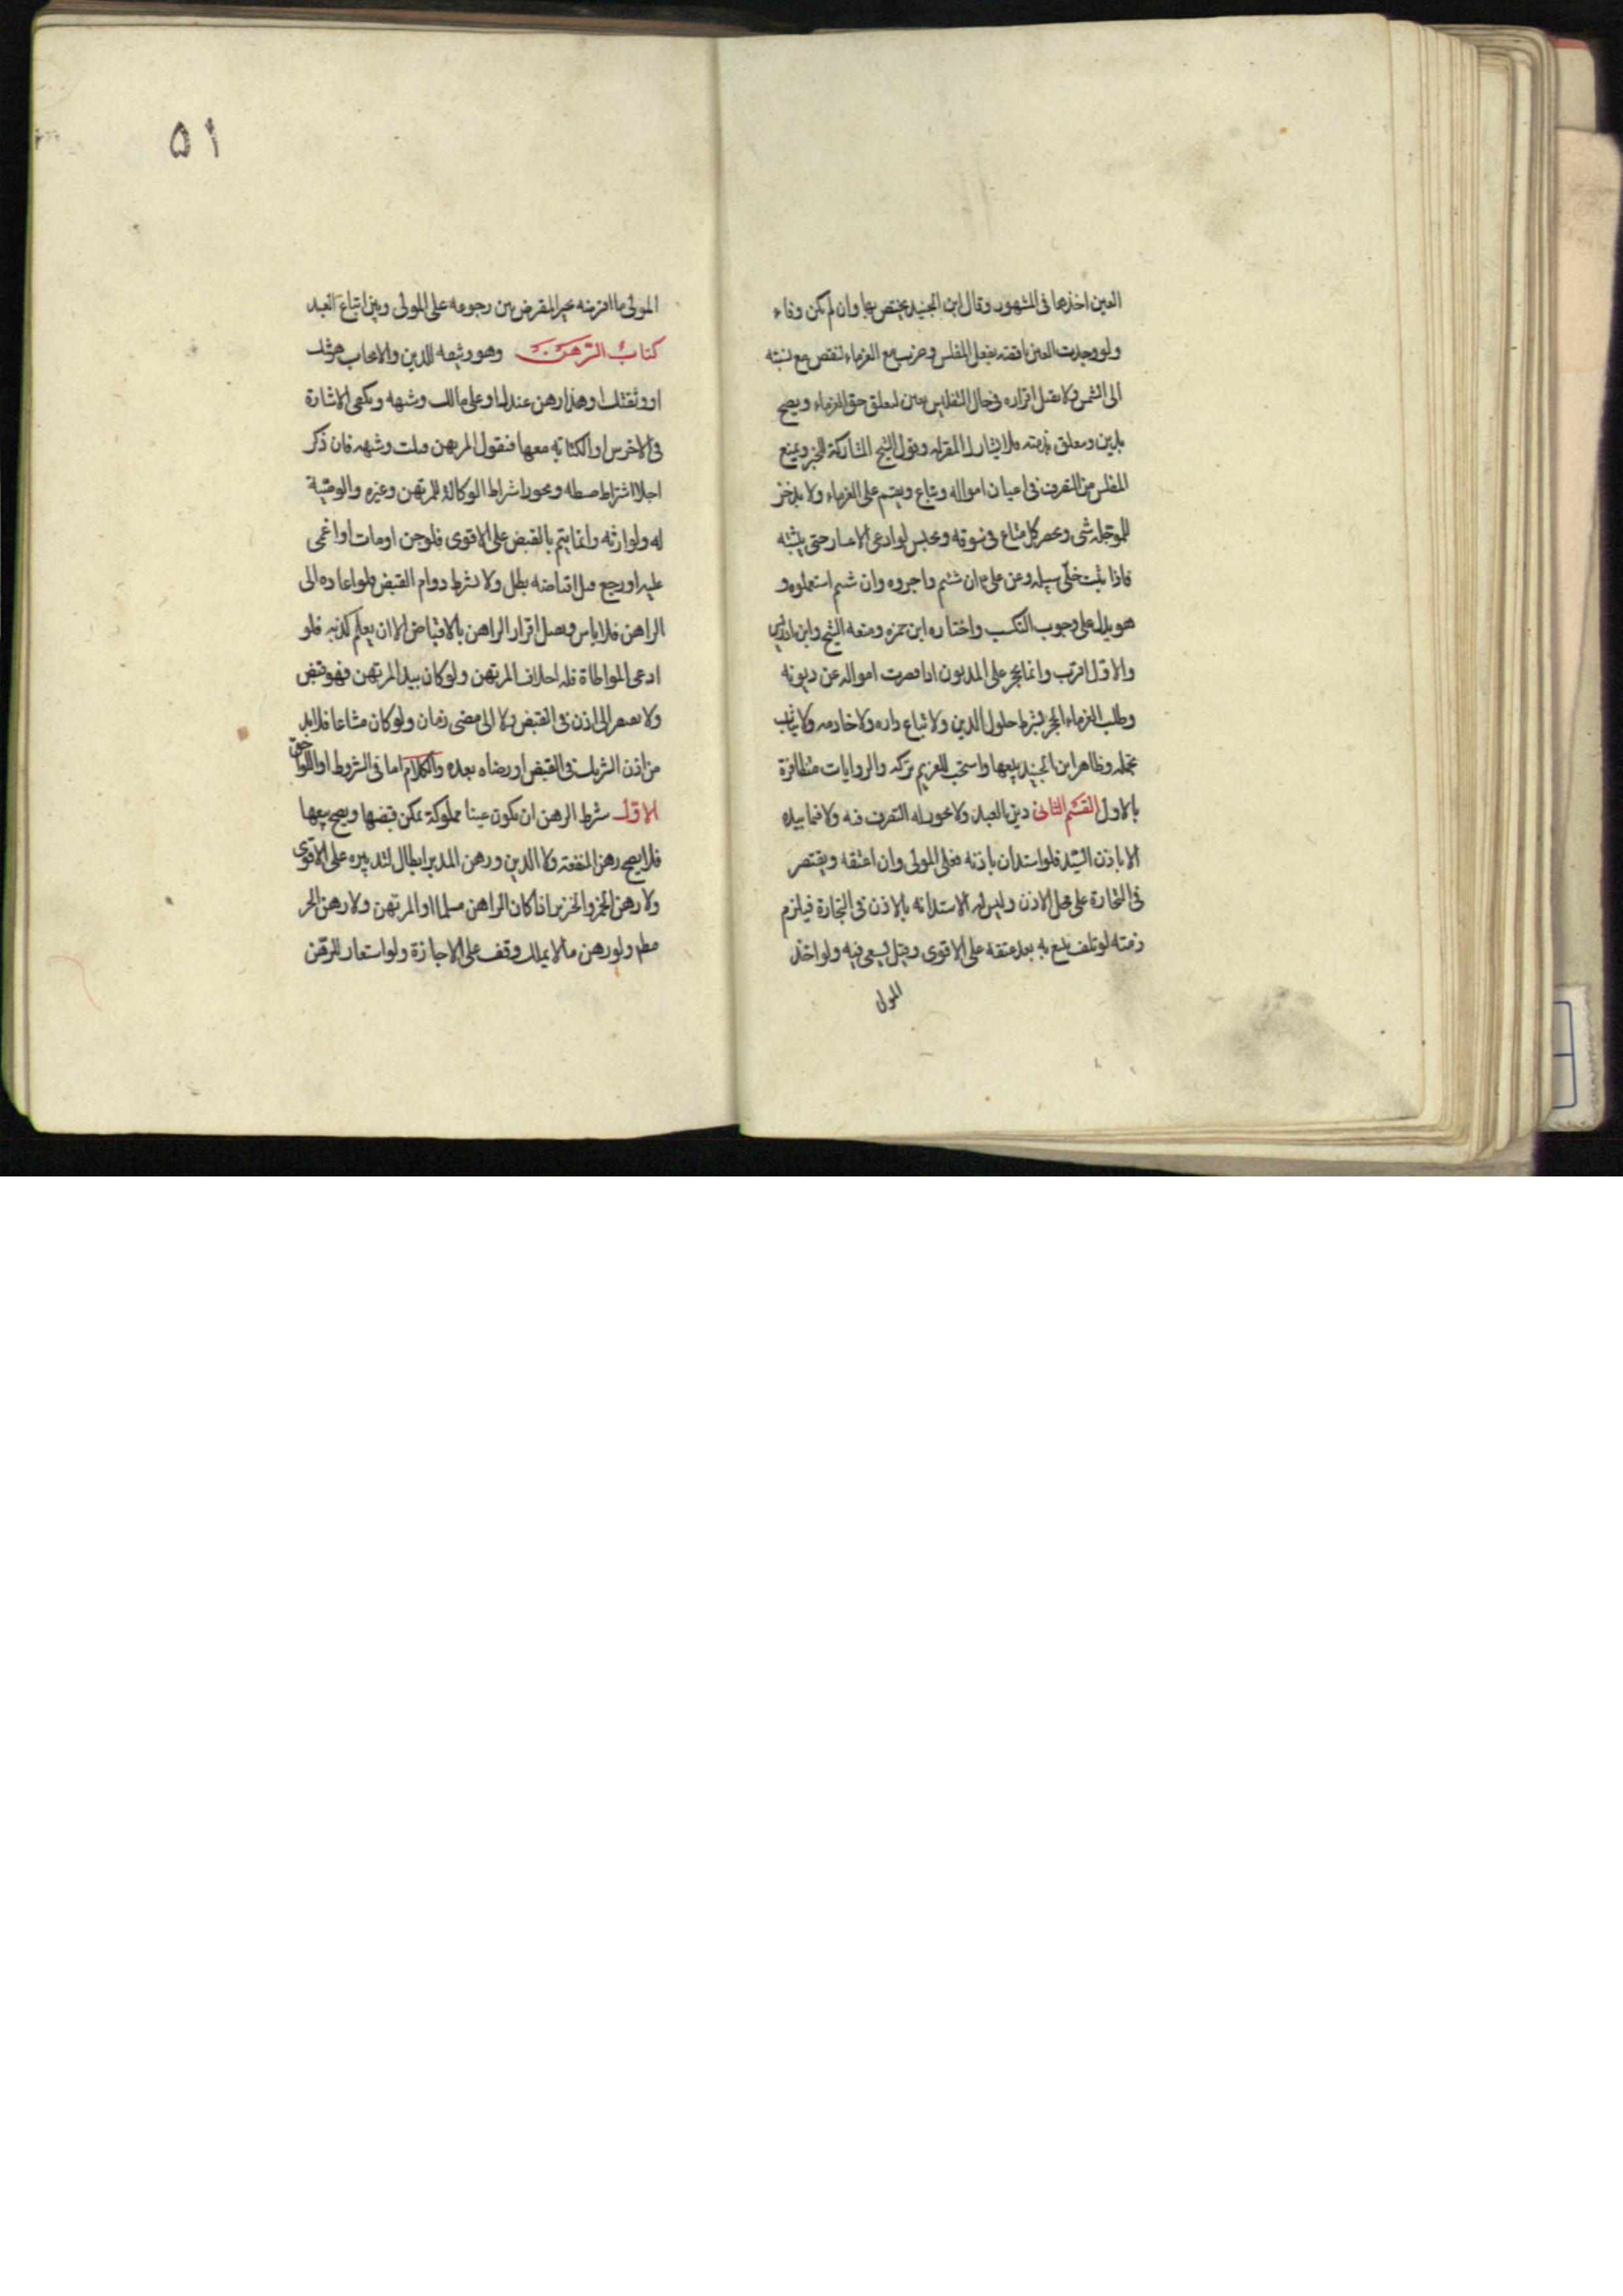 العين اخذها فى المشهور وقال ابن الجنيد يختص بها وان لم يكن وفاء
ولو وجدت العين ناقصة بفعل المفلس ضرب مع الغرماء بالنقص مع نسبته
الى الثمن ولا يقبل اقراره فى حال التفليس بعين لتعلق حق الغرماء ويصح
بدين ويتعلق بذمته فلا يشارك المقر له وقول الشيخ المشاركة للخبر ويمنع
المفلس من التصرف فى اعيان امواله وتباع ويقسم على الغرماء ولا يدخر
للمؤجلة شى ويحضر كل متاع فى سوقه ويحبس لو ادعى الاعسار حتى يثبته
فاذا ثبت خلى سبيله وعن على ع ان شئتم واجروه وان شئتم استعملوه و
هو يدل على وجوب التكسب واختاره ابن حمزه ومنعه الشيخ وابن ادريس
والاول اقرب وانما يحجر على المديون اذا قصرت امواله عن ديونه
وطلب الغرماء الحجر بشرط حلول الدين ولا تباع داره ولا خادمه ولا ثياب
تجمله وظاهر ابن الجنيد بيعها واستحب للغريم تركه والروايات متظافرة
بالاول القسم الثانى دين العبد ولا يجوز له التصرف فيه ولا فيما بيده
الا باذن السيد فلو استدان باذنه فعلى المولى وان اعتقه ويقتصر
فى التجارة على محل الاذن وليس له الاستدانه بالاذن فى التجارة فيلزم
ذمته لو تلف يتبع به بعد عتقه على الاقوى وقيل يسعى فيه ولو اخذ
المولى
٥١
المولى ما اقترضه تخير المقرض بين رجوعه على المولى وبين اتباع العبد
كتاب الرهن وهو وثيقه للدين والايجاب رهنتك
او وثقتك او هذا رهن عندك او على مالك وشبهه وتكفى الاشارة
فى الاخرس او الكتابه معها فيقول المرتهن قبلت وشبهه فان ذكر
اجلا اشترط ضبطه ويجوز اشتراط الوكالة للمرتهن وغيره والوصية
له ولوارثه وانما يتم بالقبض على الاقوى فلو جن او مات او اغمى
عليه او رجع قبل اقباضه بطل ولا يشترط دوام القبض فلو اعاده الى
الراهن فلا باس ويقبل اقرار الراهن بالاقباض الا ان يعلم كذبه فلو
ادعى المواطاة فله احلاف المرتهن ولو كان بيد المرتهن فهو قبض
ولا يفتقر الى اذن فى القبض ولا الى مضى زمان ولو كان مشاعا فلا بد
من اذن الشريك فى القبض او رضاه بعده والكلام اما فى الشروط او اللواحق
الاول شرط الرهن ان يكون عينا مملوكة يمكن قبضها ويصح بيعها
فلا يصح رهن المنفعة ولا الدين ورهن المدبر ابطال لتدبيره على الاقوى
ولا رهن الخمر والخنزير اذا كان الراهن مسلما او المرتهن ولا رهن الحر
مطم ولو رهن ما لا يملك وقف على الاجازة ولو استعار للرهن